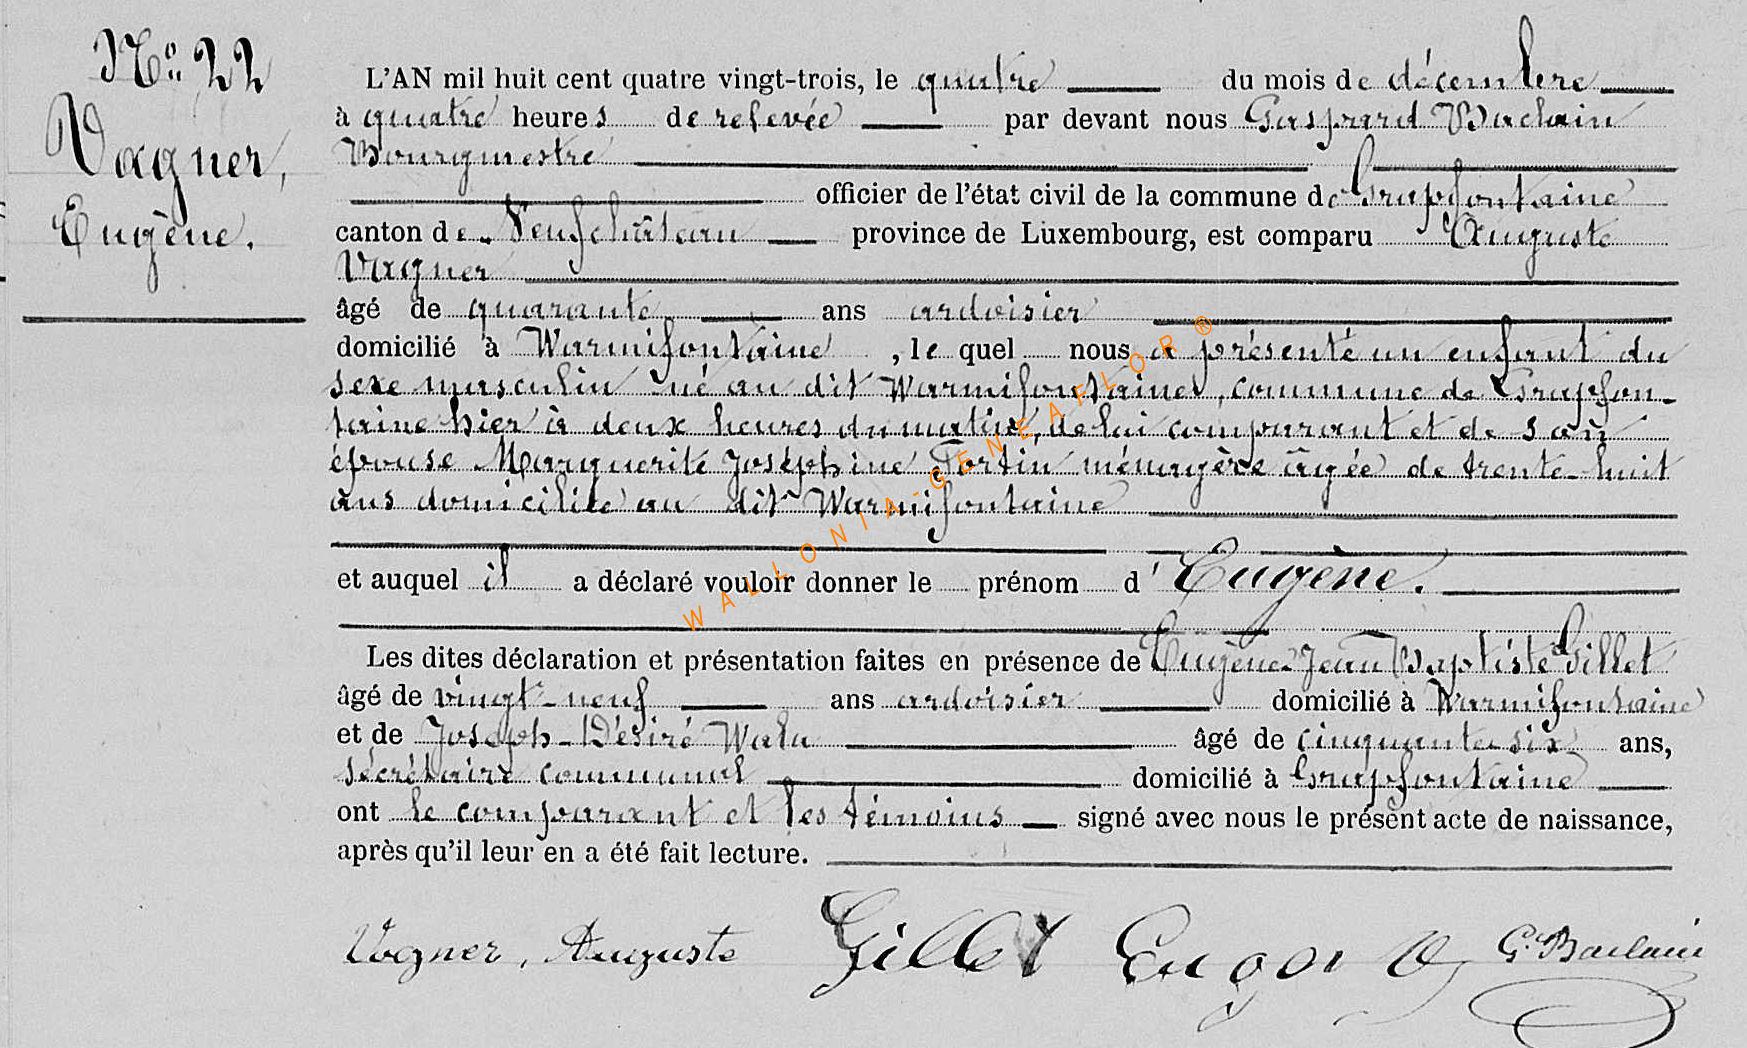 N° 22
Vagner,
Eugène.
L'AN mil huit cent quatre vingt-trois, le quatre du mois de décembre
à quatre heures de relevée par devant nous Gaspard Baclain
Bourgmestre
officier de l'état civil de la commune de Grapfontaine
canton de Neufchâteau province de Luxembourg, est comparu Auguste
Vagner
âgé de quarante ans ardoisier
domicilié à Warmifontaine, le quel nous a présenté un enfant du
sexe masculin né au dit Warmifontaine, commune de Grapfon-
taine hier à deux heures du matin, de lui comparant et de son
épouse Marguerite Joséphine Fortin ménagère âgée de trente-huit
ans domiciliée au dit Warmifontaine
et auquel il a déclaré vouloir donner le prénom d'Eugène.
Les dites déclaration et présentation faites en présence de Eugène-Jean Baptiste Gillet
âgé de vingt-neuf ans ardoisier domicilié à Warmifontaine
et de Joseph-Désiré Wala âgé de cinquante-six ans,
sécrétaire communal domicilié à Grapfontaine
ont le comparant et les témoins signé avec nous le présent acte de naissance,
après qu'il leur en a été fait lecture.
Vagner, Auguste Gillet Eugene G. Baclain
WALLONIA-GENEAFLOR®